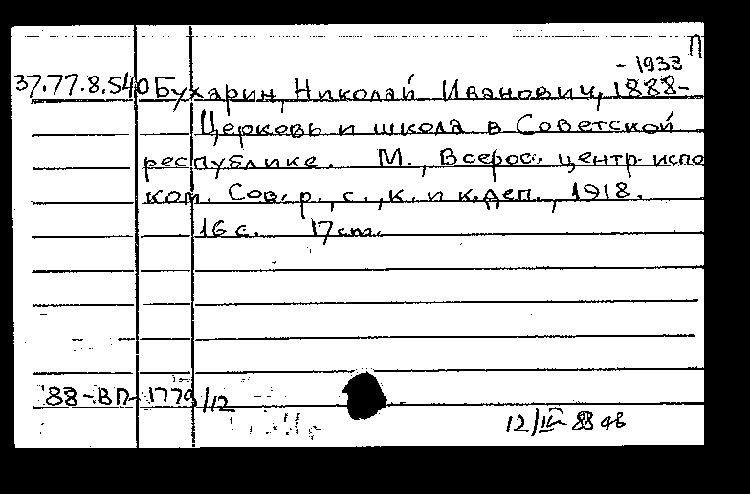 П
- 1933
37.77.8.540 Бухарин, Николай Иванович, 1888-
Церковь и школа в Советской
республике. М., Всерос. центр. испо
ком. Сов. р., с., к. и к. деп., 1918.
16 с. 17 cm.
'88-ВП-1779/12
12/IV-88